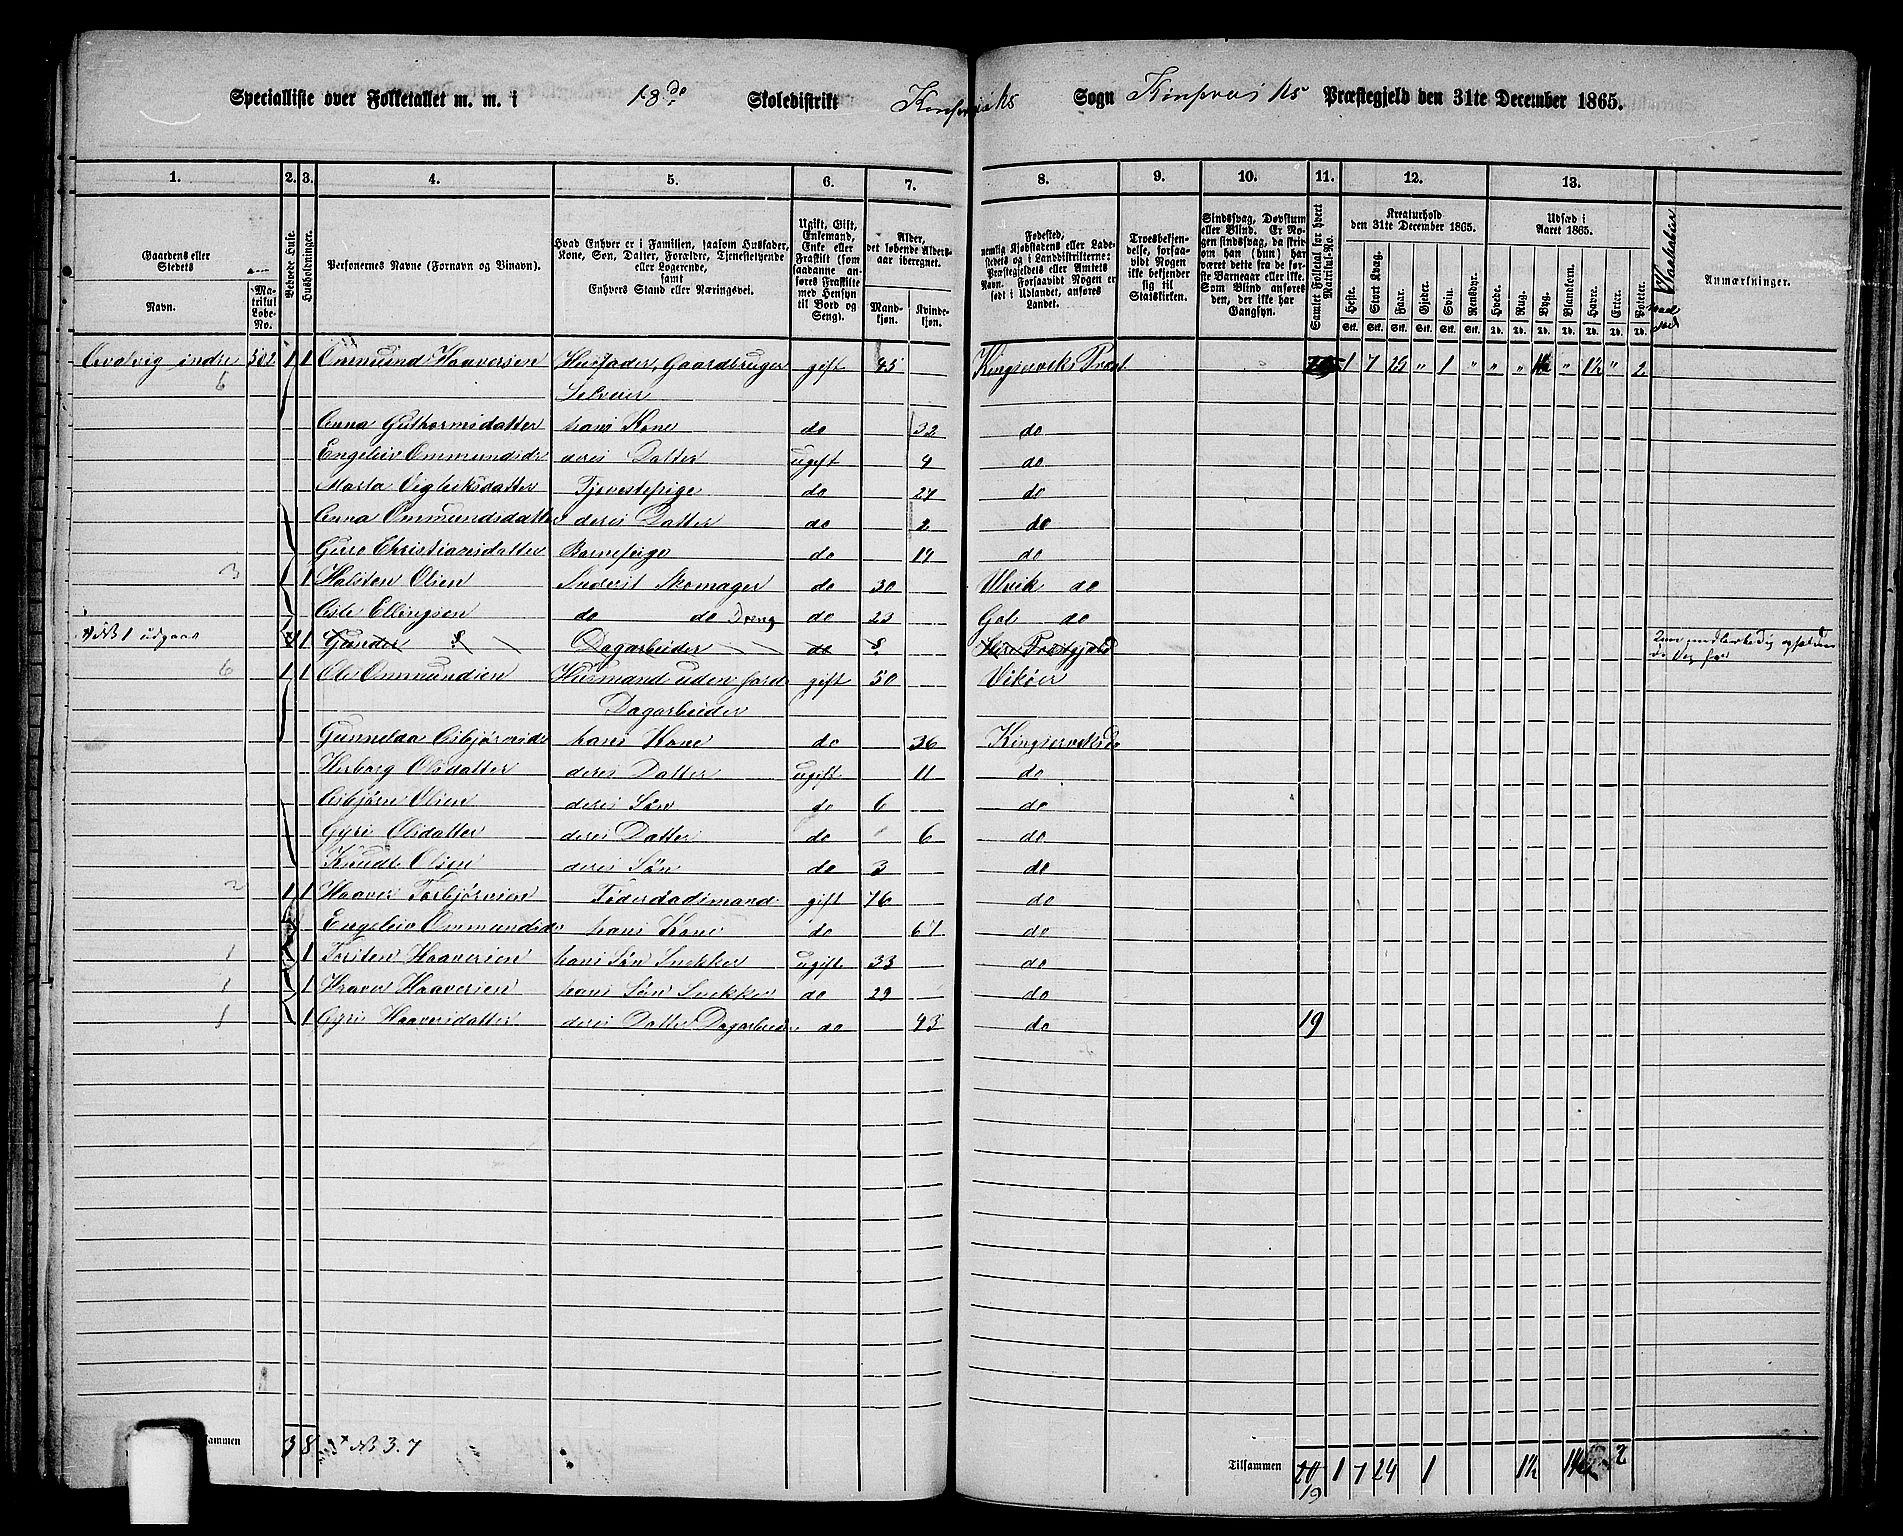 Specialliste over Folketallet m. m. i 18de Skoledistrikt Kinserviks Sogn Kinserviks Præstegjeld den 31te December 1865.
1. 2. 3. 4. 5. 6. 7. 8. 9. 10. 11. 12. 13.
Gaardens eller Stedets
Navn.
Matrikul Løbe-No.
Beboede Huse.
Husholdninger.
Personernes Navne (Fornavn og Vinavn).
Hvad Enhver er i Familien, saasom Husfader, Kone, Søn, Datter, Forældre, Tjenestetyende eller Logerende, samt Enhvers Stand eller Næringsvei.
Ugift, Gift, Enkemand, Enke eller Fraskilt (som saadanne anføres Fraskilte med Hensyn til Bord og Seng).
Alder, det løbende Alders-aar iberegnet.
Mand-kjøn. Kvinde-kjøn.
Fødested, nemlig Kjøbstadens eller Ladestedets og i Landdistrikterne: Præstegjeldets eller Amtets Navn. Forsaavidt Nogen er født i Udlandet, anføres Landet.
Troesbekjendelse, forsaavidt Nogen ikke bekjender sig til Statskirken.
Sindssvag, Døvstum eller Blind. Er Nogen sindssvag, da skrives om han (hun) har været dette fra de første Barneaar eller ikke. Som Blind anføres den, der ikke har Gangsyn.
Samlet Folketal for hvert Matrikul-No.
Kreaturhold den 31te December 1865.
Heste. Stort Kvæg. Faar. Gjeder. Sviin. Rensdyr.
Stk. Stk. Stk. Stk. Stk. Stk.
Udsæd i Aaret 1865.
Hvede. Rug. Byg. Blandkorn. Havre. Erter. Poteter.
Td. Td. Td. Td. Td. Td. Td.
Anmærkninger.
indre 502 1 1 Ommund Haaversen Husfader, Gaardbruger gift 45 Kingserviks Præst 1 7 25 " 1 " " " " 1½ " 2
6 Selveier
Anna Guthormsdatter hans Kone do 32 do
Engeleiv Ommundsdr deres Datter ugift 4 do
Marta Vigleiksdatter Tjenestepige do 27 do
Anna Ommundsdatter deres Datter do 2 do
Guro Christiansdatter Barnepige do 14 do
3 1 1 Halsten Olsen Inderst Skomager do 30 Ulvik do
Asle Ellingsen do do Dreng do 23 Gol do
No 1 udgaar 1 Gunder Dagarbeider do
6 1 1 Ole Ommundsen Husmand uden Jord gift 50 Vikøer
Dagarbeider
Gunnilda Asbjørnsdr hans Kone do 36 Kingserviks do
Herborg Olsdatter deres Datter ugift 11 do
Asbjørn Olsen deres Søn do 6 do
Gyri Olsdatter deres Datter do 6 do
Knudt Olsen deres Søn do 3 do
2 1 1 Haaver Torbjørnsen Føderaadsmand gift 76 do
Engeleiv Ommundsdr hans Kone do 67 do
1 1 Torsten Haaversen hans Søn Snekker ugift 33 do
1 1 Haaver Haaversen hans Søn Snekker do 29 do
1 1 Gyri Haaversdatter deres Datter Dagarbeider do 43 do 19
3 8 No 3.7
Tilsammen 20 1 7 24 1 1½ 2
19